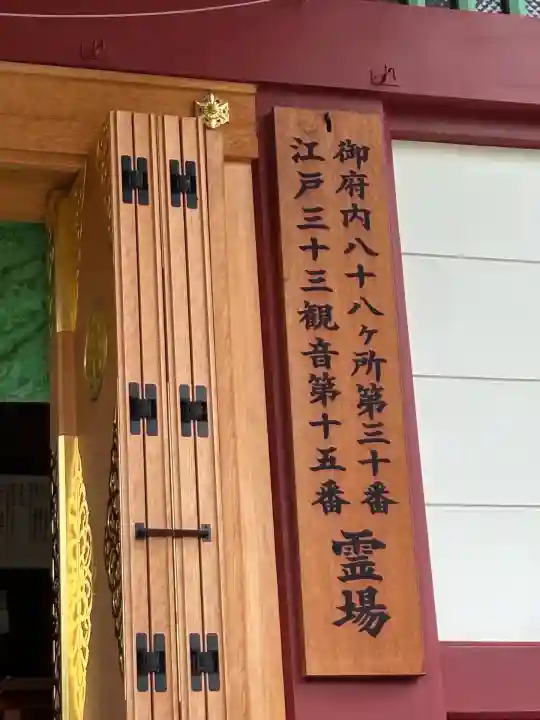 御府内八十八ヶ所第三十番
江戸三十三観音第十五番
霊場